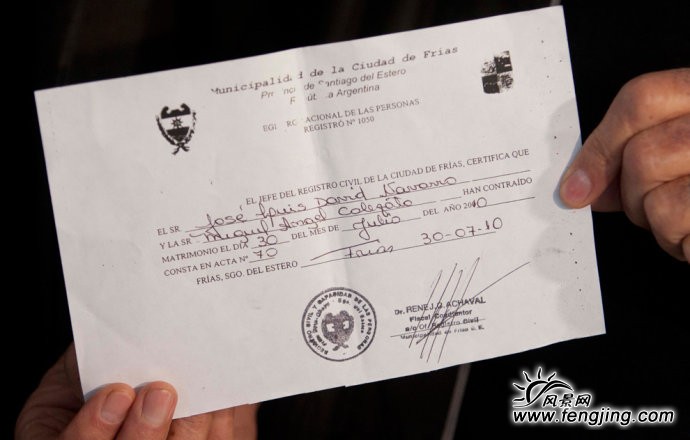 Municipalidad de la Ciudad de Frías
de Santiago del Estero
Argentina
NACIONAL DE LAS PERSONAS
REGISTRO Nº 1050
EL JEFE DEL REGISTRO CIVIL DE LA CIUDAD DE FRÍAS, CERTIFICA QUE
EL SR. José Luis David Navarro
Y LA SR Miguel Angel Calefato HAN CONTRAÍDO
MATRIMONIO EL DÍA 30 DEL MES DE Julio DEL AÑO 2010
CONSTA EN ACTA Nº 70
FRÍAS, SGO. DEL ESTERO Frias 30-07-10
REGISTRO CIVIL Y CAPACIDAD DE LAS PERSONAS
Dr. RENE J. Q. ACHAVAL
Fiscal
a/c Of. Registro Civil
Municipalidad de Frías
风景网
www.fengjing.com